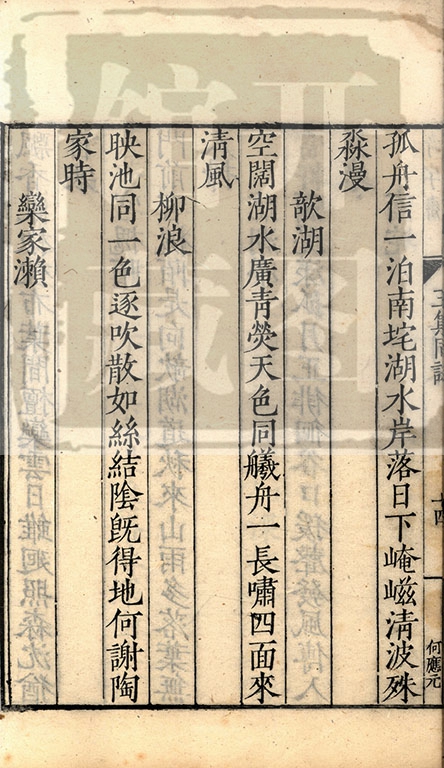 孤舟信一泊南垞湖水岸落日下崦嵫淸波殊
淼漫
欹湖
空闊湖水廣青熒天色同艤舟一長嘯四面來
淸風
柳浪
映池同一色逐吹散如絲結陰旣得地何謝陶
家時
欒家瀨
十四
何應元